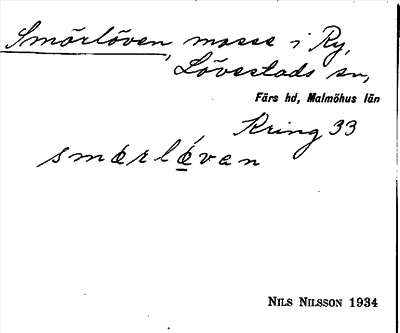 Smörlöven, mosse i Ry,
Lövestads sn,
Färs hd, Malmöhus län
Kring 33
smœrlœ́van
NILS NILSSON 1934